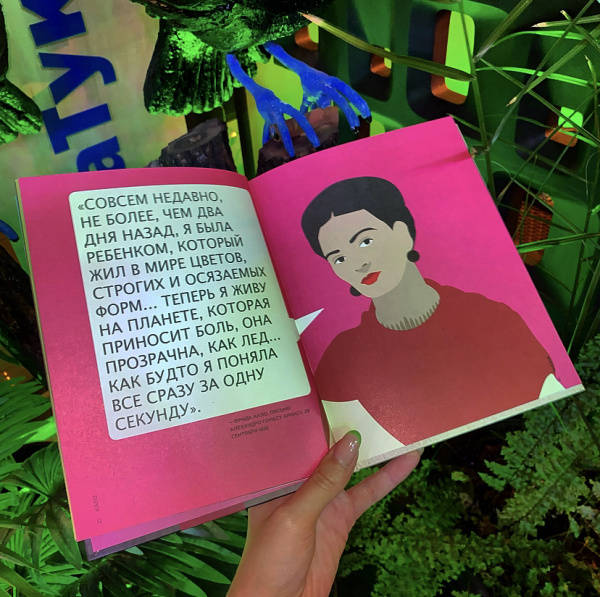 «СОВСЕМ НЕДАВНО,
НЕ БОЛЕЕ, ЧЕМ ДВА
ДНЯ НАЗАД, Я БЫЛА
РЕБЕНКОМ, КОТОРЫЙ
ЖИЛ В МИРЕ ЦВЕТОВ,
СТРОГИХ И ОСЯЗАЕМЫХ
ФОРМ... ТЕПЕРЬ Я ЖИВУ
НА ПЛАНЕТЕ, КОТОРАЯ
ПРИНОСИТ БОЛЬ, ОНА
ПРОЗРАЧНА, КАК ЛЕД...
КАК БУДТО Я ПОНЯЛА
ВСЕ СРАЗУ ЗА ОДНУ
СЕКУНДУ».
– ФРИДА КАЛО, ПИСЬМО
АЛЕХАНДРО ГОМЕСУ АРИАСУ,
СЕНТЯБРЯ 1926